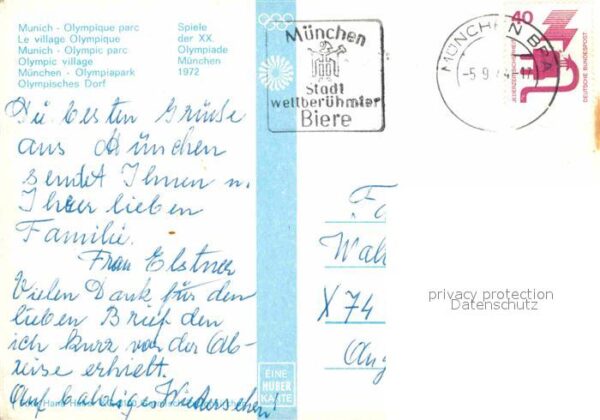 Munich - Olympique parc
Le village Olympique
Munich - Olympic parc
Olympic village
München - Olympiapark
Olympisches Dorf
Spiele
der XX.
Olympiade
München
1972
München
Stadt
weltberühmter
Biere
MÜNCHEN BPA
-5.9.
40
JEDERZEIT SICHERHEIT
DEUTSCHE BUNDESPOST
Die besten Grüße
aus München
sendet Ihnen u.
Ihrer lieben
Familie.
Frau Elstner
Vielen Dank für den
lieben Brief den
ich kurz vor der Ab-
reise erhielt.
Auf baldiges Wiedersehen
Fa
Wal
X 74
Aug
privacy protection
Datenschutz
EINE
HUBER
KARTE